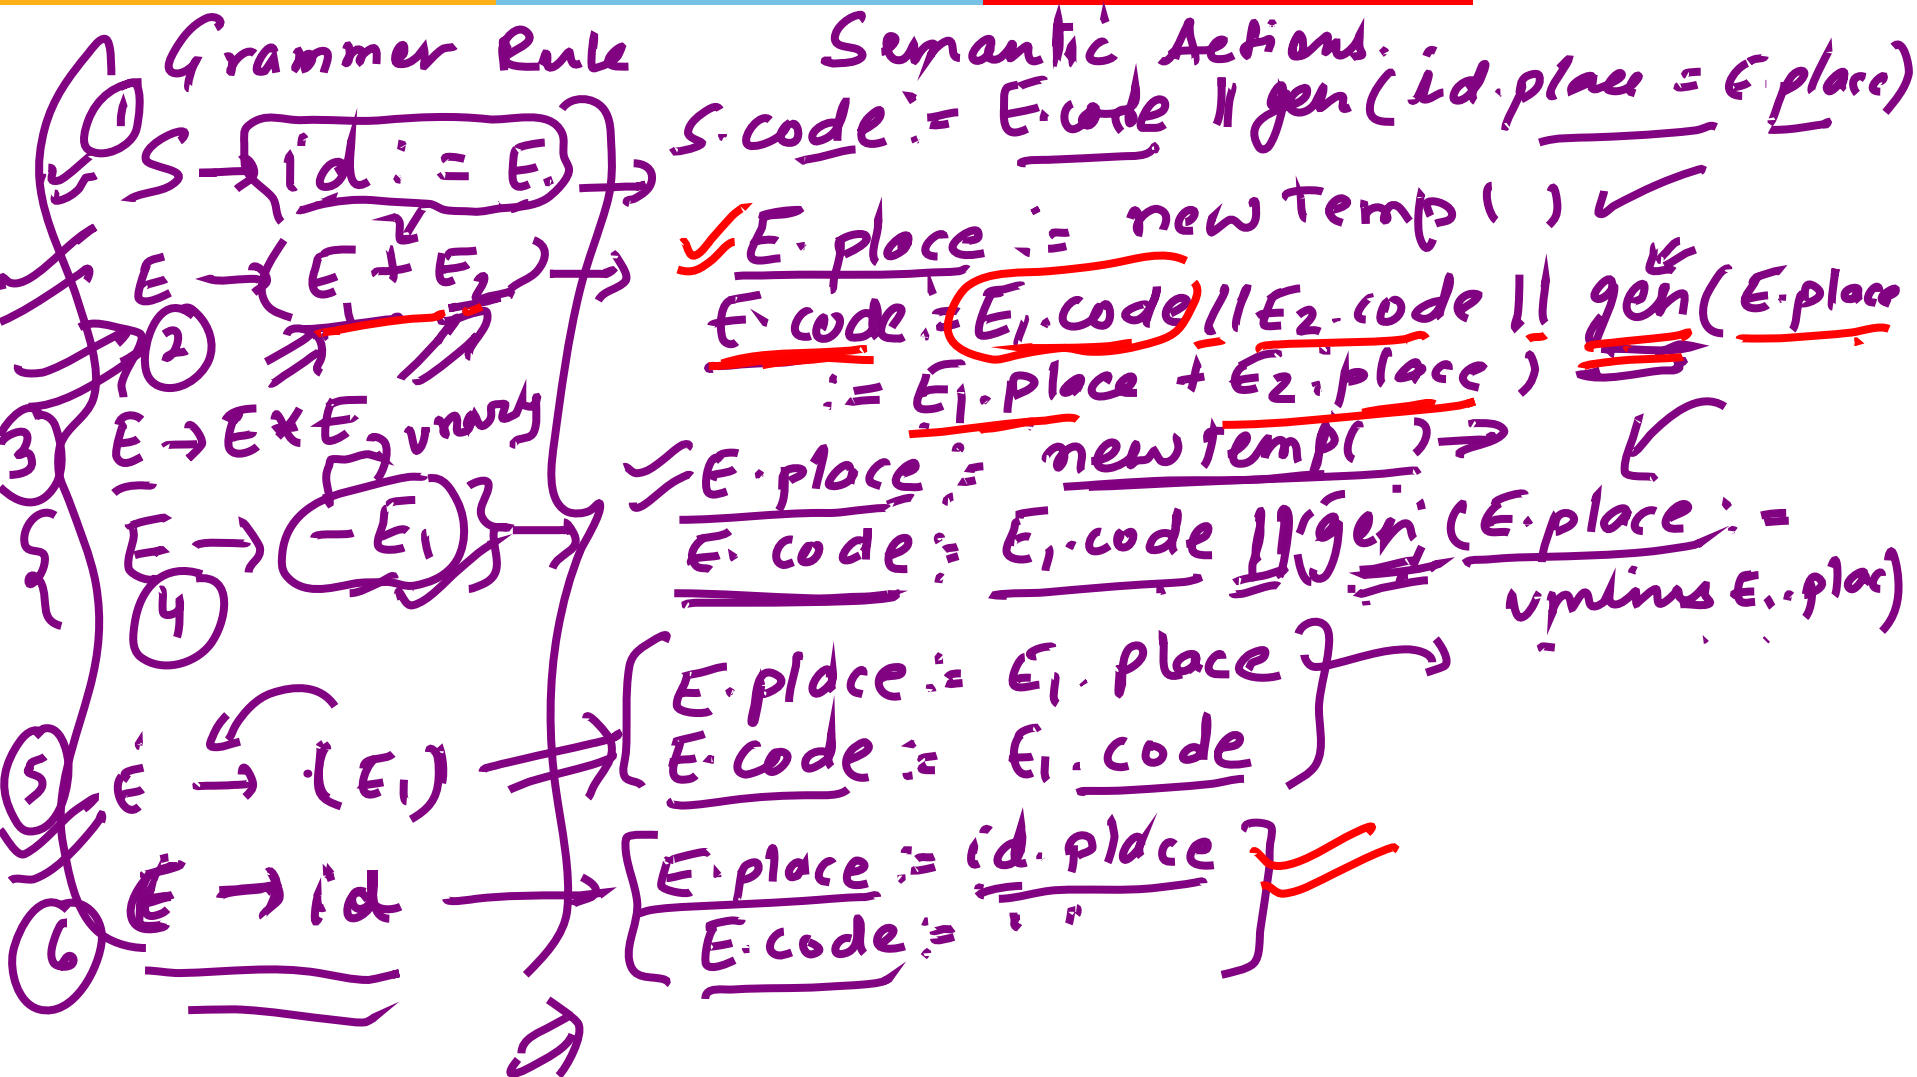 Grammer Rule Semantic Actions.
① S → id := E. S.code := E.code || gen(id.place = E.place)
E → (E + E2) E.place := newtemp( )
② E.code := E1.code || E2.code || gen(E.place
:= E1.place + E2.place)
③ E → E * E unary E.place := newtemp( ) →
E → - E1 E.code := E1.code || gen (E.place :=
④ uminus E1.plac)
E.place := E1.place
⑤ E → (E1) E.code := E1.code
E → id E.place := id.place
⑥ E.code := " "